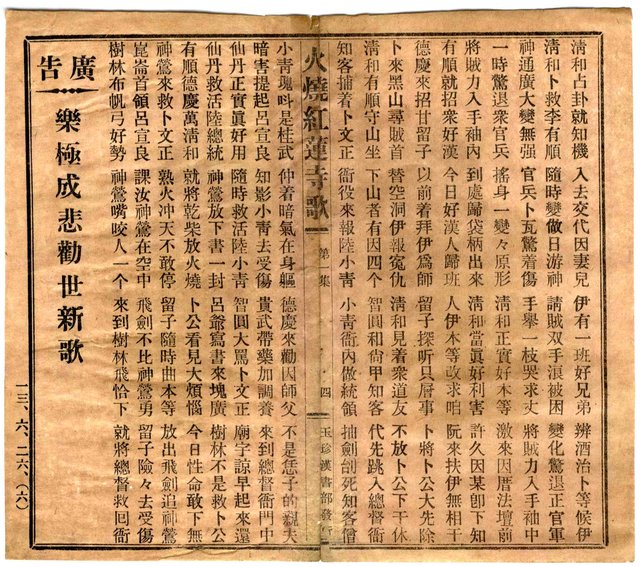 清和占卦就知機 入去交代因妻兒 伊有一班好兄弟 辨酒治卜等候伊
清和卜救李有順 隨時變做日游神 請賊双手淚被困 變化驚退正官軍
神通廣大變無强 官兵卜瓦驚着傷 手舉一枝哭求丈 將賊力入手袖中
一時驚退衆官兵 搖身一變々原形 清和正實好本等 激來因厝法壇前
將賊力入手袖內 到處歸袋柄出來 清和當眞好利害 許久因某卽下知
有順就招衆好漢 今日好漢人歸班 人伊本等改求咱 阮來扶伊無相干
德慶來招甘留子 以前着拜伊爲師 留子探听只厨事 卜將卜公大先除
卜來黑山尋賊首 替空洞伊報寃仇 清和見着衆道友 不放卜公下干休
清和有順守山坐 下山者有因四个 智圓和尙甲知客 代先跳入總督衙
知客捕着卜文正 衙役來報陸小青 小靑衙內做統領 抽劍刣死知客僧
火燒紅蓮寺歌 第一集 四 玉珍漢書部發行
小青塊呌是桂武 仲着暗氣在身軀 德慶來勸因師父 不是恁子的親夫
暗害提起呂宣良 知影小青去受傷 貴武帶藥加調養 來到總督衙門中
仙丹正實眞好用 隨時救活陸小青 智圓大罵卜文正 廟宇諒早起來還
仙丹救活陸總統 神鶯放下書一封 呂爺寫書來塊廣 樹林不是救卜公
有順德慶萬清和 就將乾柴放火燒 卜公看見大煩惱 今日性命敢下無
神鶯來救卜文正 熟火冲天不敢停 留子隨時曲本等 放出飛劍追神鶯
崑崙首領呂宣良 課汝神鶯在空中 飛劍不比神鶯勇 留子險々去受傷
樹林布帆弓好勢 神鶯嘴咬人一个 來到樹林飛恰下 就將總督救囘衙
廣告
樂極成悲勸世新歌
一三、六、二六、(六)